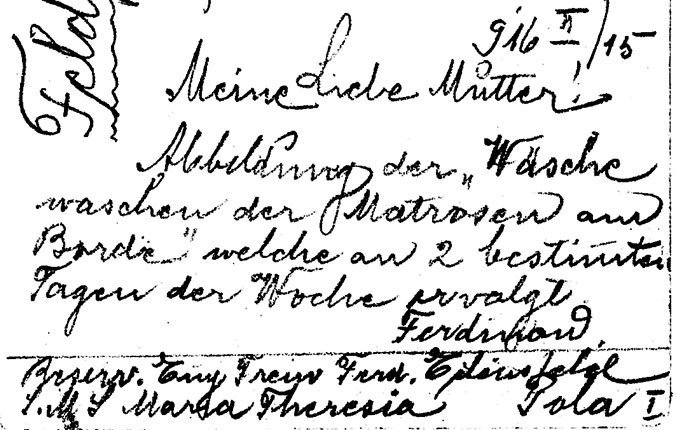 Feld
916 II/15
Meine Liebe Mutter!
Abbildung der „Wäsche
waschen der Matrosen am
Borde" welche an 2 bestimten
Tagen der Woche ervolgt
Ferdinand.
Reserv. Ferd.
S.M.S Maria Theresia Pola I